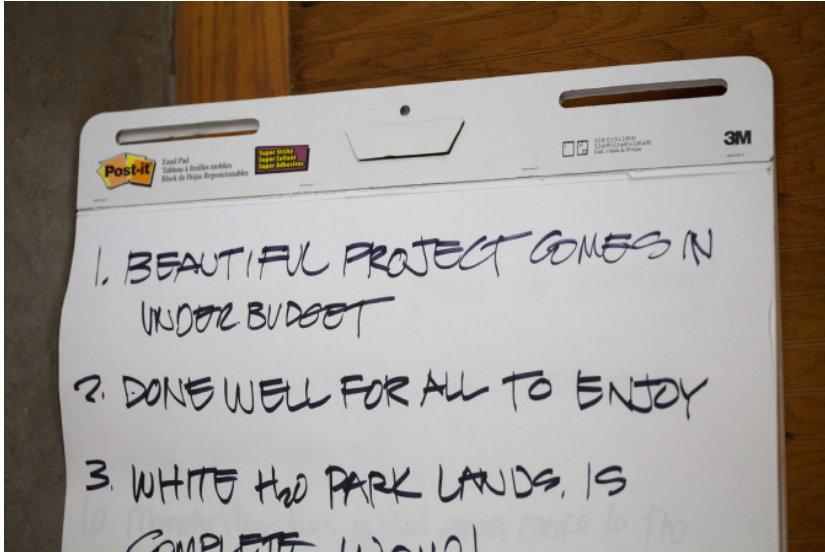 Post-it
Easel Pad
Tableau à feuilles mobiles
Block de Hojas Reposicionables
Super Sticky
Super Collant
Super Adhesivas
3M
1. BEAUTIFUL PROJECT COMES IN
UNDER BUDGET
2. DONE WELL FOR ALL TO ENJOY
3. WHITE H2O PARK LANDS. IS
COMPLETE